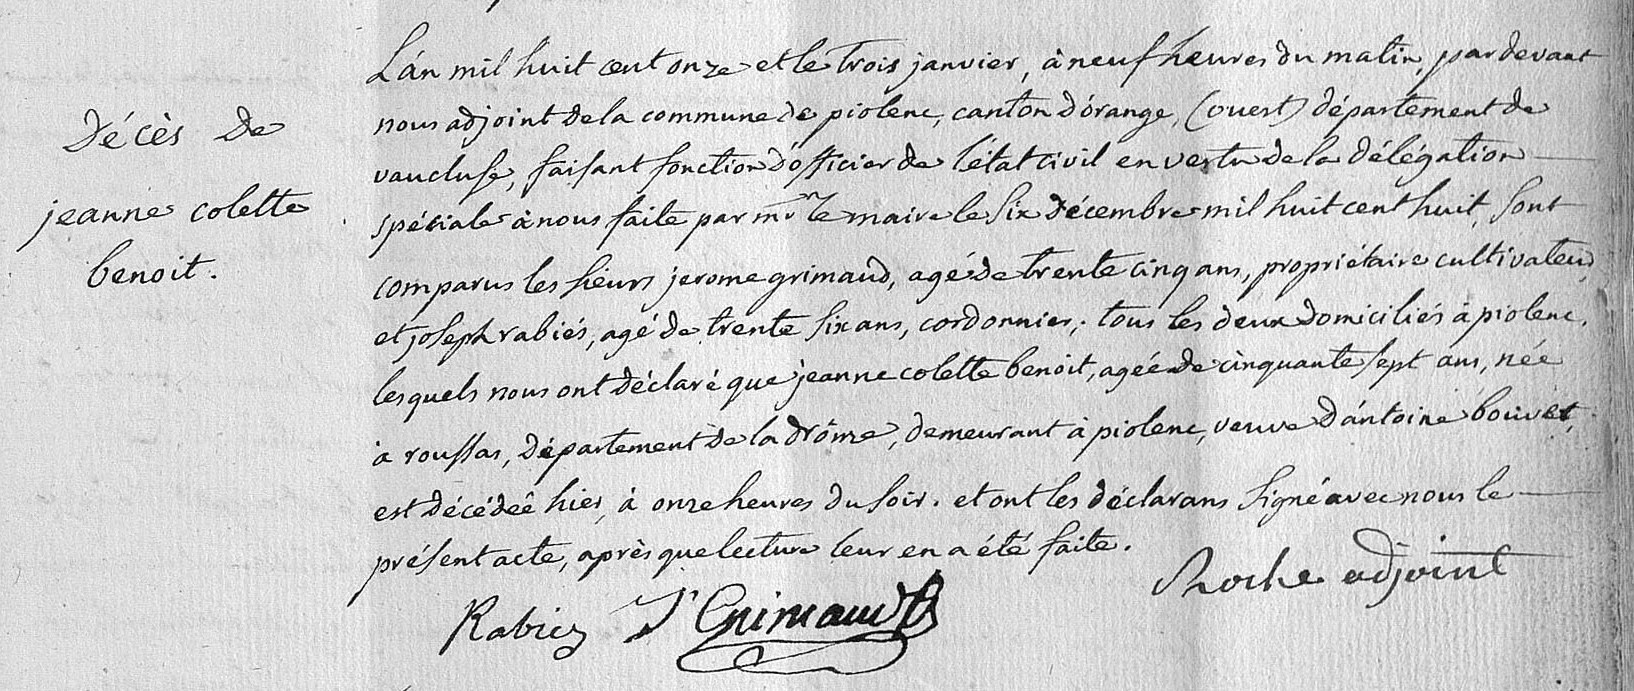 Décès de
jeanne colette
benoit.
L'án mil huit cent onze et le trois janvier, à neuf heures du matin, pardevant
nous adjoint de la commune de piolenc, canton d'órange, (ouest) département de
vaucluse, faisant fonction d'officier de l'état civil en vertu de la délégation
spéciale à nous faite par mr le maire le six décembre mil huit cent huit, sont
comparus les sieurs jerome grimaud, agé de trente cinq ans, propriétaire cultivateur,
et joseph rabiés, agé de trente six ans, cordonnier, tous les deux domiciliés à piolenc,
lesquels nous ont déclaré que jeanne colette benoit, agée de cinquante sept ans, née
à roussas, département de la drôme, demeurant à piolenc, veuve d'ántoine bouvet,
est décédeé hier, à onze heures du soir. et ont les déclarans signé avec nous le
présent acte, après que lecture leur en a été faite.
Roche adjoint
Rabiez J Grimaud